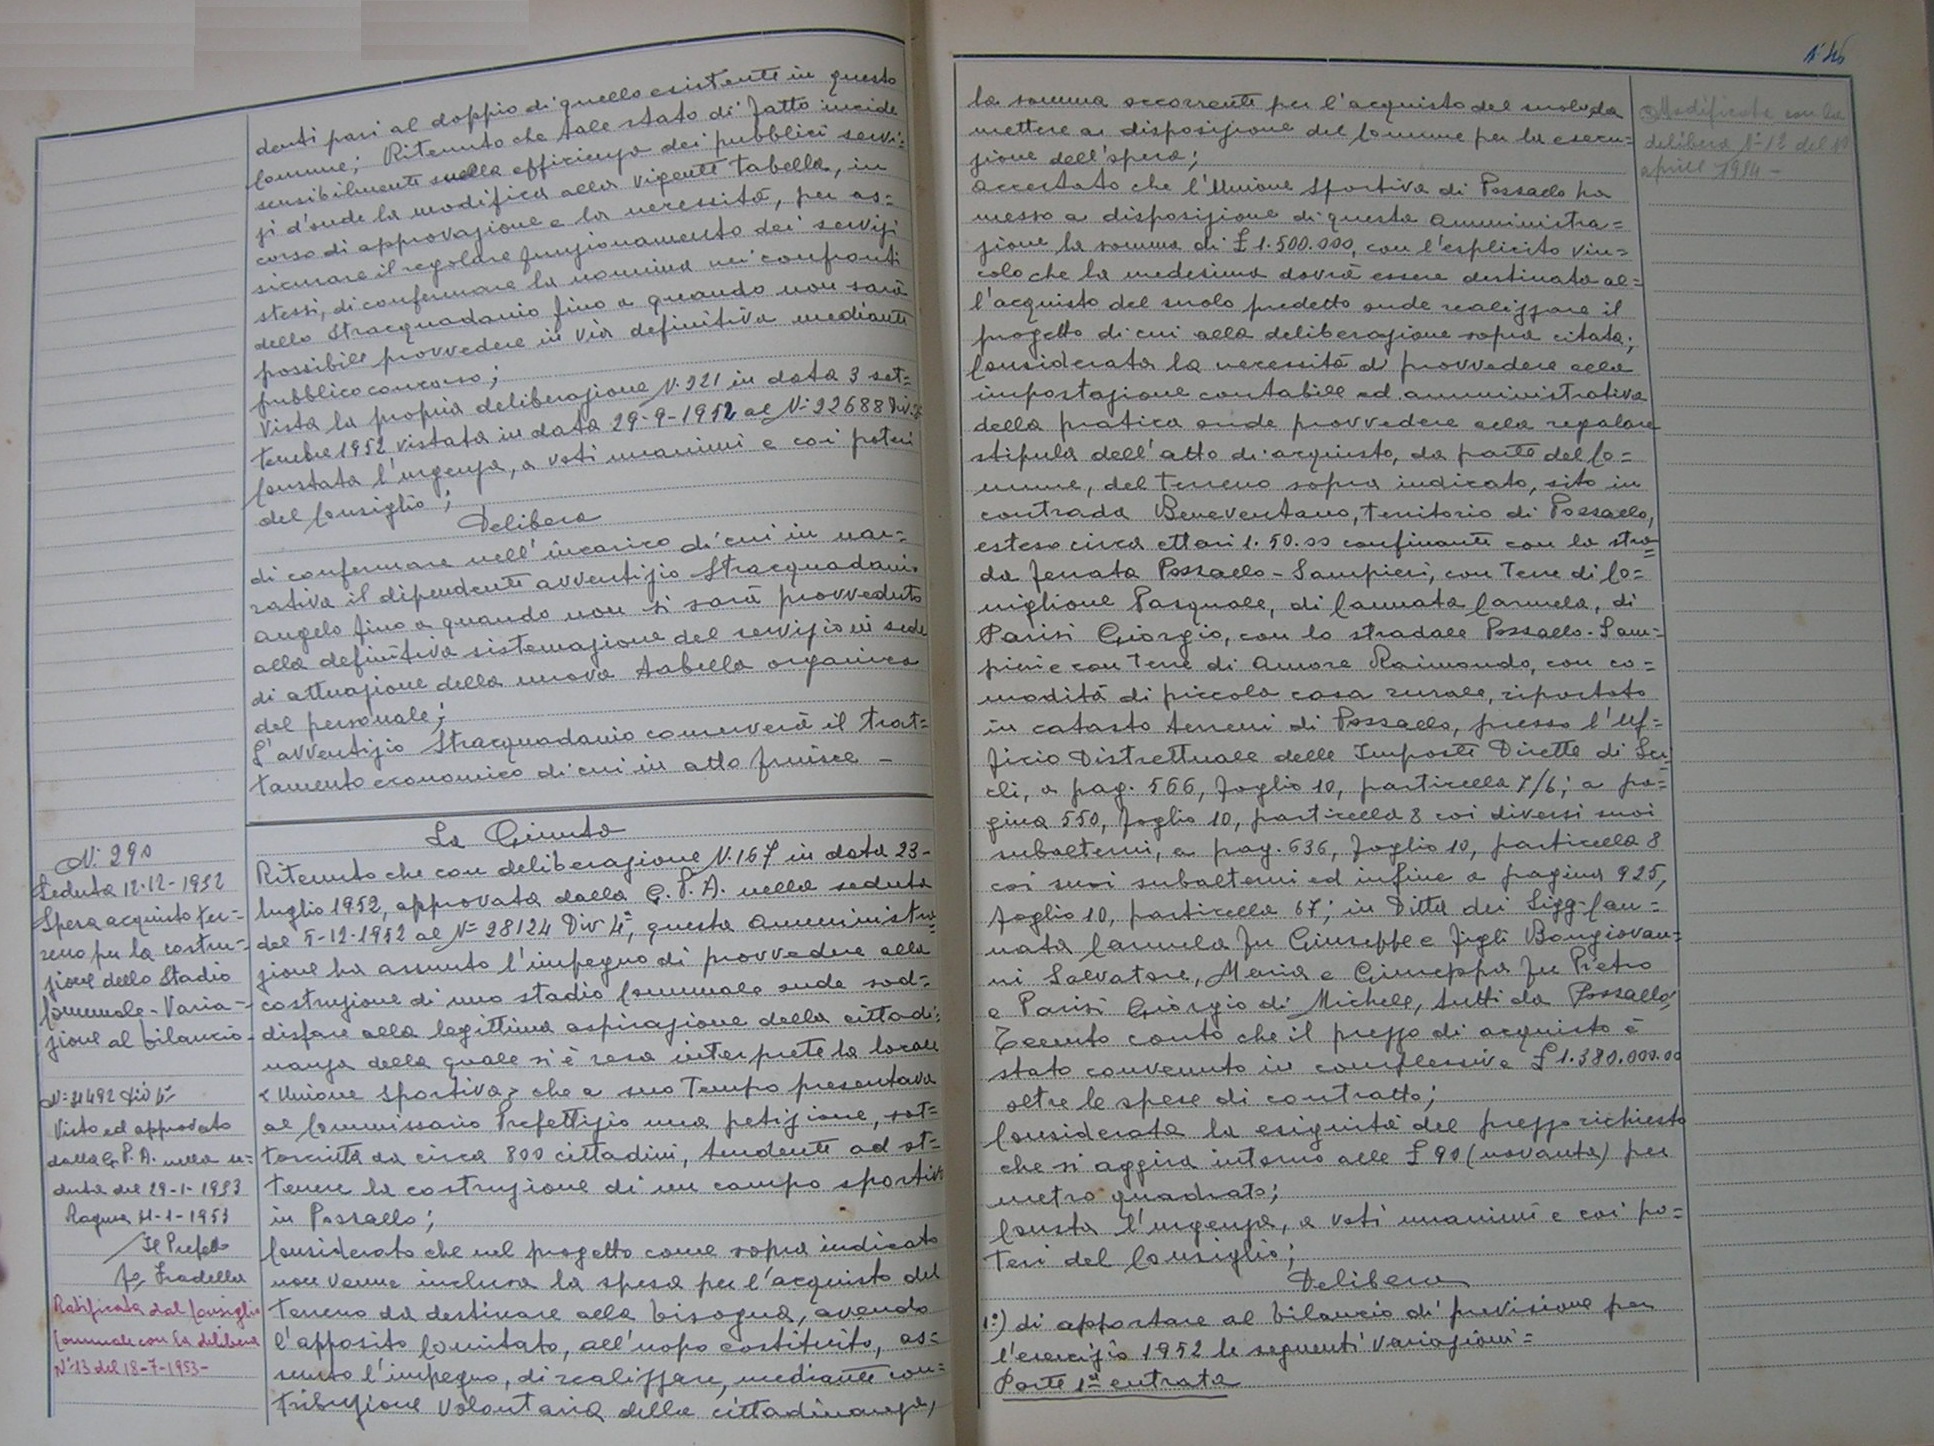 denti pari al doppio di quello esistente in questo
Comune; Ritenuto che tale stato di fatto incide
sensibilmente sulla efficienza dei pubblici servi=
zi d'onde la modifica alla vigente tabella, in
corso di approvazione e la necessità, per as=
sicurare il regolare funzionamento dei servizi
stessi, di confermare la nomina nei confronti
dello Stracquadanio fino a quando non sarà
possibile provvedere in via definitiva mediante
pubblico concorso;
Vista la propria deliberazione N. 221 in data 3 set=
tembre 1952 vistata in data 29-9-1952 al N- 22688 Div.
Constata l'urgenza, a voti unanimi e coi poteri
del Consiglio;
Delibera
di confermare nell'incarico di cui in nar=
rativa il dipendente avventizio Stracquadanio
Angelo fino a quando non si sarà provveduto
alla definitiva sistemazione del servizio in sede
di attuazione della nuova tabella organica
del personale;
L'avventizio Stracquadanio conserverà il trat=
tamento economico di cui in atto fruisce -
N. 290
Seduta 12-12-1952
Spesa acquisto ter=
reno per la costru=
zione dello Stadio
Comunale - Varia=
zione al bilancio -
N= 31492 Div 4ª
Visto ed approvato
dalla G. P. A. nella se=
duta del 29-1-1953
Ragusa 31-1-1953
Il Prefetto
Ratificata dal Consiglio
Comunale con la delibera
N. 13 del 18-7-1953-
La Giunta
Ritenuto che con deliberazione N. 167 in data 23-
luglio 1952, approvata dalla G. P. A. nella seduta
del 5-12-1952 al N= 28124 Div 4ª, questa Amministra=
zione ha assunto l'impegno di provvedere alla
costruzione di uno stadio Comunale onde sod=
disfare alla legittima aspirazione della cittadi=
nanza della quale si è resa interprete la locale
"Unione Sportiva" che a suo tempo presentava
al Commissario Prefettizio una petizione, sot=
toscritta da circa 800 cittadini, tendente ad ot=
tenere la costruzione di un campo sportivo
in Pozzallo;
Considerato che nel progetto come sopra indicato
non venne inclusa la spesa per l'acquisto del
terreno da destinare alla bisogna, avendo
l'apposito Comitato, all'uopo costituito, as=
sunto l'impegno, di realizzare, mediante con=
tribuzione volontaria della cittadinanza,
la somma occorrente per l'acquisto del suolo da
mettere a disposizione del Comune per la esecu=
zione dell'opera;
Accertato che l'Unione Sportiva di Pozzallo ha
messo a disposizione di questa Amministra=
zione la somma di £ 1.500.000, con l'esplicito vin=
colo che la medesima dovrà essere destinata al=
l'acquisto del suolo predetto onde realizzare il
progetto di cui alla deliberazione sopra citata;
Considerata la necessità di provvedere alla
impostazione contabile ed amministrativa
della pratica onde provvedere alla regolare
stipula dell'atto di acquisto, da parte del Co=
mune, del terreno sopra indicato, sito in
contrada Beneventano, territorio di Pozzallo,
esteso circa ettari 1.50.00 confinante con la stra=
da ferrata Pozzallo - Sampieri, con terre di Co=
niglione Pasquale, di Cannata Carmela, di
Parisi Giorgio, con lo stradale Pozzallo - Sam=
pieri e con terre di Amore Raimondo, con co=
modità di piccola casa rurale, riportato
in catasto terreni di Pozzallo, presso l'Uf=
ficio Distrettuale delle Imposte Dirette di Sci=
cli, a pag. 566, foglio 10, particella 7/6; a pa=
gina 550, foglio 10, particella 8 coi diversi suoi
subalterni, a pag. 636, foglio 10, particella 8
coi suoi subalterni ed infine a pagina 925,
foglio 10, particella 67; in Ditta dei Sigg. Can=
nata Carmela fu Giuseppe e figli Bongiovan=
ni Salvatore, Maria e Giuseppa fu Pietro
e Parisi Giorgio di Michele, tutti da Pozzallo;
Tenuto conto che il prezzo di acquisto è
stato convenuto in complessive £ 1.380.000.00
oltre le spese di contratto;
Considerata la esiguità del prezzo richiesto
che si aggira intorno alle £ 90 (novanta) per
metro quadrato;
Consta l'urgenza, a voti unanimi e coi po=
teri del Consiglio;
Delibera
1º) di apportare al bilancio di previsione per
l'esercizio 1952 le seguenti variazioni=
Parte 1ª entrata
Modificata con la
delibera N. 12 del
aprile 1954 -